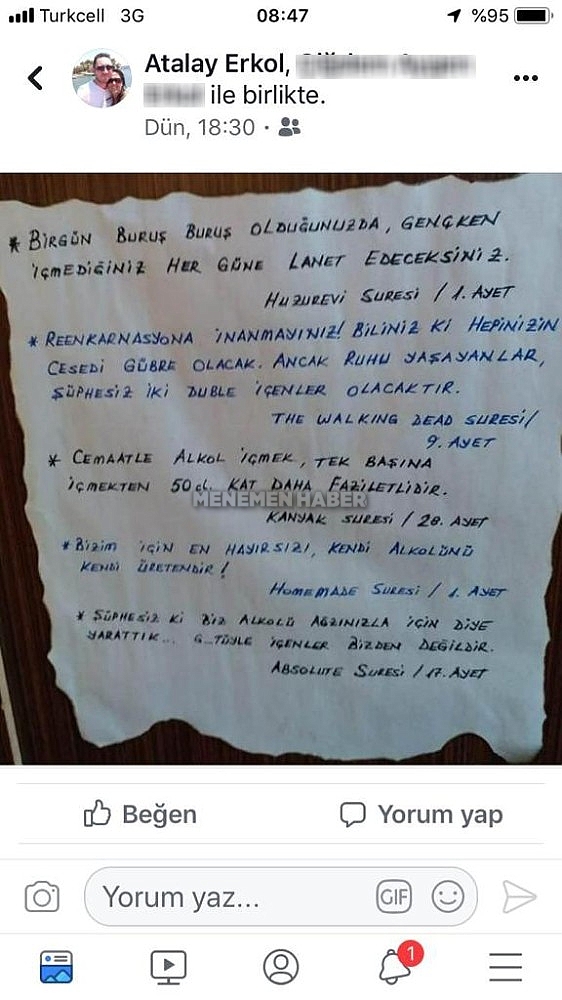 Turkcell 3G 08:47 %95
Atalay Erkol,
ile birlikte.
Dün, 18:30 ·
* BİRGÜN BURUŞ BURUŞ OLDUĞUNUZDA, GENÇKEN
İÇMEDİĞİNİZ HER GÜNE LANET EDECEKSİNİZ.
HUZUREVİ SURESİ / 1. AYET
* REENKARNASYONA İNANMAYINIZ! BİLİNİZ Kİ HEPİNİZİN
CESEDİ GÜBRE OLACAK. ANCAK RUHU YAŞAYANLAR,
ŞÜPHESİZ İKİ DUBLE İÇENLER OLACAKTIR.
THE WALKING DEAD SURESİ/
9. AYET
* CEMAATLE ALKOL İÇMEK, TEK BAŞINA
İÇMEKTEN 50 cl. KAT DAHA FAZİLETLİDİR.
MENEMEN HABER
KANYAK SURESİ / 28. AYET
* BİZİM İÇİN EN HAYIRSIZI, KENDİ ALKOLÜNÜ
KENDİ ÜRETENDİR!
HOMEMADE SURESİ / 1. AYET
* ŞÜPHESİZ Kİ BİZ ALKOLÜ AĞZINIZLA İÇİN DİYE
YARATTIK... G..TÜYLE İÇENLER BİZDEN DEĞİLDİR.
ABSOLUTE SURESİ / 17. AYET
Beğen Yorum yap
Yorum yaz... GIF
1